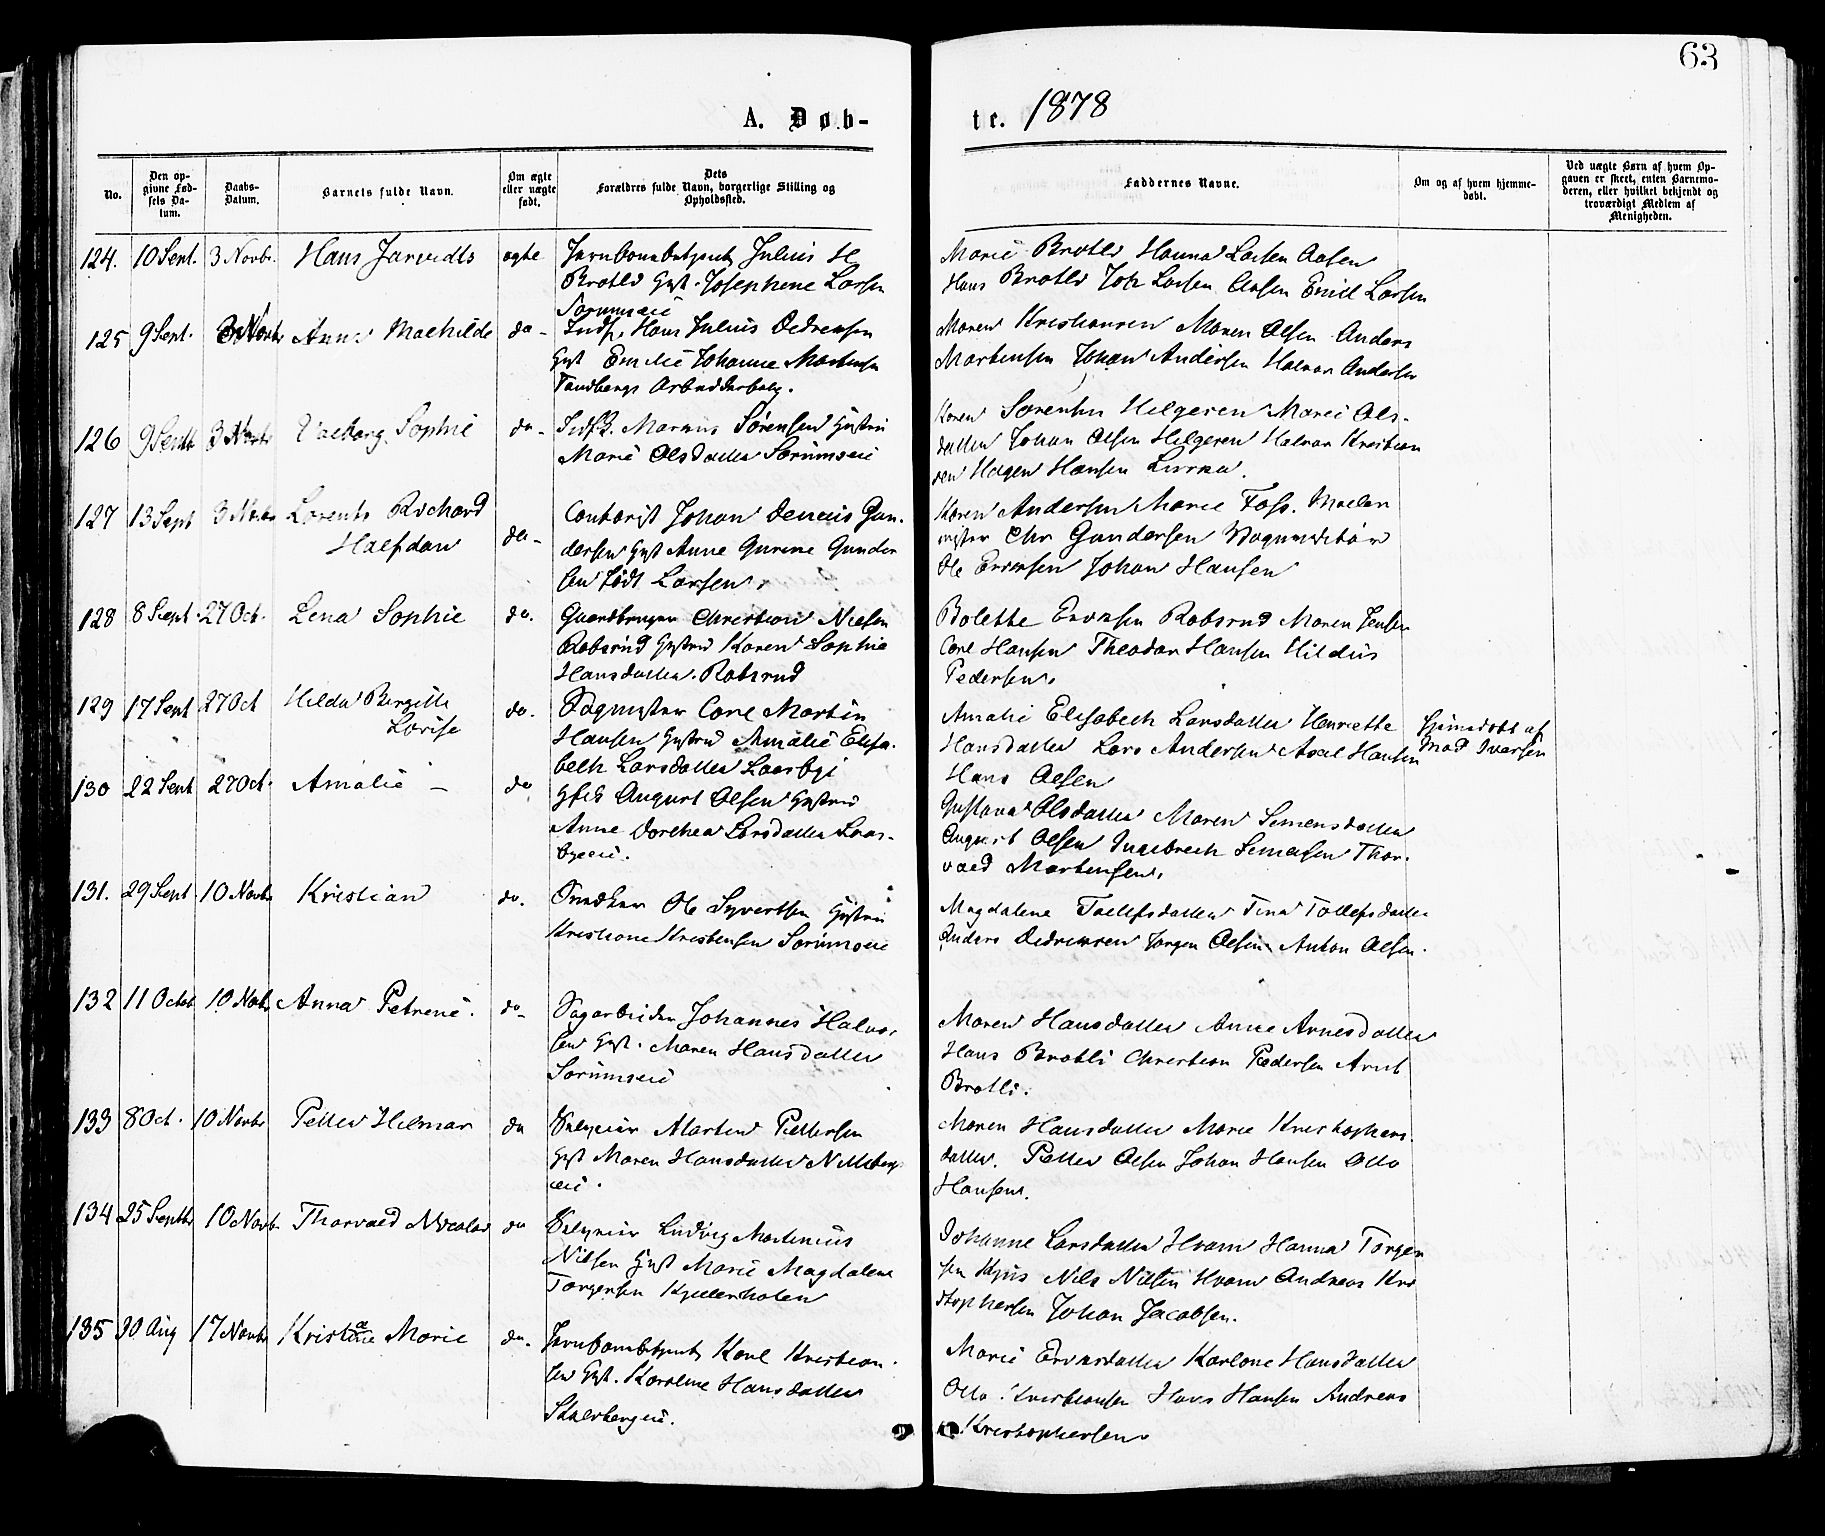 63
A. Døb-
te. 1878
No.
Den op-
givne Fød-
sels Da-
tum.
Daabs-
Datum.
Barnets fulde Navn.
Om ægte
eller uægte
født.
Dets
Forældres fulde Navn, borgerlige Stilling og
Opholdssted.
Faddernes Navne.
Om og af hvem hjemme-
døbt.
Ved uægte Børn af hvem Op-
gaven er skeet, enten Barnemo-
deren, eller hvilket bekjendt og
troværdigt Medlem af
Menigheden.
124. 10 Sept. 3 Novbr. Hans ægte Julius H
Brotli Gust. Josephine Larsen
Sørumseie
Marie Brotli Hanna Larsen Aasen
Hans Brotli Joh Larsen Aasen Emil Larsen
125 9 Sept. 3 Novbr Anna Mathilde do- Indst. Hans Julius Pedersen
Gust Emilie Johanne Mortensen
Tandbergs Arbeiderbolig.
Maren Kristiansen Maren Olsen Anders
Mortensen Johan Andersen Halvor Andersen
126 9 Septb 3 Novbr Valborg Sophie do- Indst. Markus Sørensen Gustru
Marie Olsdatter Sørumseie
Karen Sørensen Helgeren Marie Ols-
datter Johan Olsen Helgeren Halvor Kristian
sen Hagen Hansen
127 13 Sept 3 Novbr Lorents Richard
Halfdan
do- Contorist Johan Gun-
dersen Gust Anne Gurine Gunder
sen født Larsen.
Karen Andersen Marie Foss. Maler
mester Chr Gundersen
Ole Evensen Johan Hansen
128 8 Sept. 27 Oct. Lena Sophie do. Gaardbruger Christian Nielsen
Robsrud Gustru Karen Sophie
Hansdatter Robsrud
Bolette Evensen Robsrud Maren Jensen
Carl Hansen Theodor Hansen Hildus
Pedersen.
129 17 Sept 27 Oct Hilda Bergitte
Lovise
do. Sagmester Carl Martin
Hansen Gustru Amalie Elisa-
beth Larsdatter
Amalie Elisabeth Larsdatter Henriette
Hansdatter Lars Andersen Axel Hansen
Hans Olsen
Hjemmedøbt af
Mad Iversen
130 22 Sept 27 Oct. Amalie - do August Olsen Gustru
Anne Dorthea Larsdatter
Gustava Olsdatter Maren Simensdatter
August Olsen Ingebreth Simensen Thor-
vald Mortensen.
131. 29 Sept 10 Novbr Kristian do. Snedker Ole Syvertsen Gustru
Kristiane Kristensen Sørumseie
Magdalene Tollefsdatter Tina Tollefsdatter
Anders Pedersen Jørgen Olsen Anton Olsen.
132 11 Octob 10 Novb Anna Petrine. do- Sagarbeider Johannes Halvor-
sen Gust. Maren Hansdatter
Sørumseie
Maren Hansdatter Anne Arnesdatter
Hans Brotli Christian Pedersen Arnt
Brotli.
133 8 Oct. 10 Novbr Petter Hilmar do Selveier Martin Pettersen
Gust Maren Hansdatter Nittebergs
eie.
Maren Hansdatter Marie Kristophers-
datter. Petter Olsen Johan Hansen Otto
Hansen.
134 25 Septbr 10 Novb. Thorvald Nicolai do Selveier Ludvig Martinius
Nilsen Gust Marie Magdalene
Torgersen Kjellerholen
Johanne Larsdatter Hvam Hanna Torger
sen Kjus Nils Nilsen Hvam Andreas Kri
stophersen Johan Jacobsen.
135 30 Aug 17 Novbr Kristiane Marie do. Karl Kristian-
sen Gust. Karoline Hansdatter
Skalbergeie.
Marie Evensdatter Karlone Hansdatter
Otto Kristiansen Hans Hansen Andreas
Kristophersen.